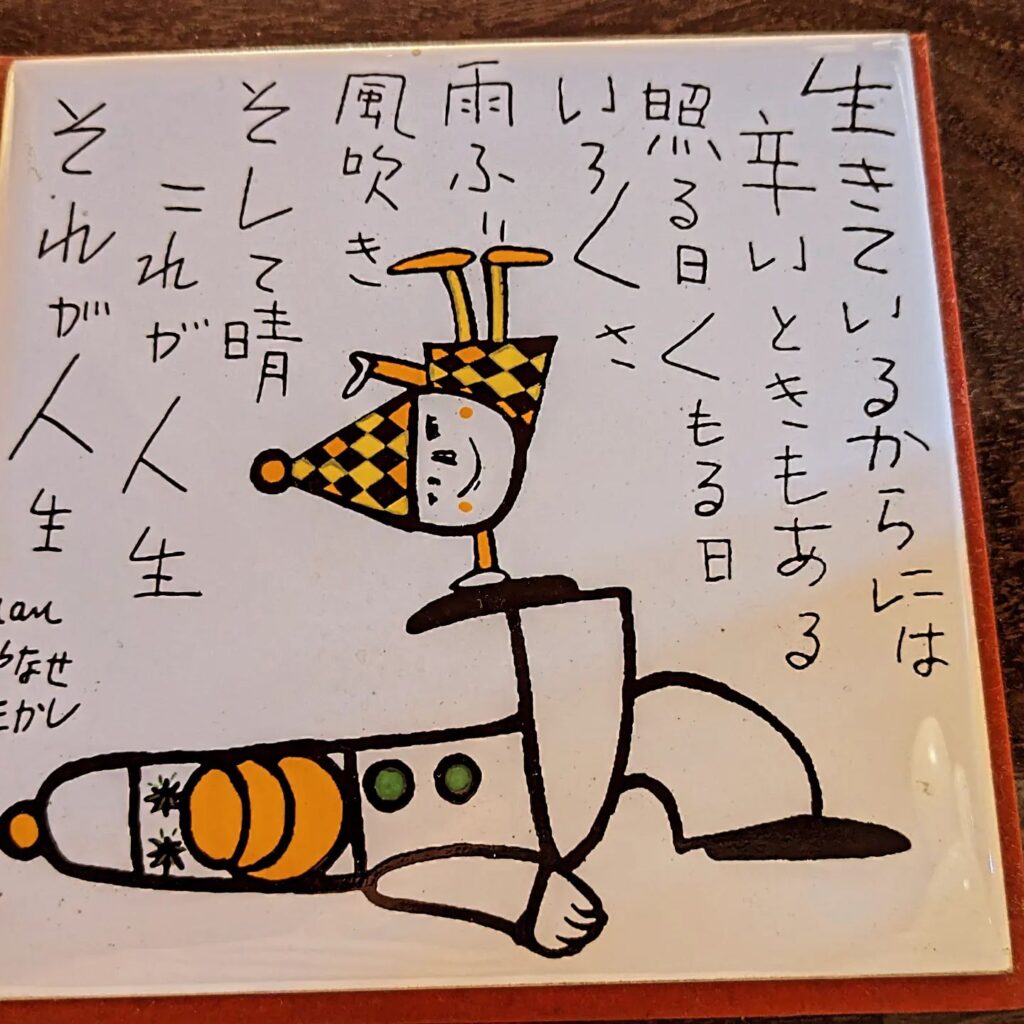 生きているからには
辛いときもある
照る日くもる日
いろ〳〵さ
雨ふり
風吹き
そして晴
これが人生
それが人生
やなせ
たかし